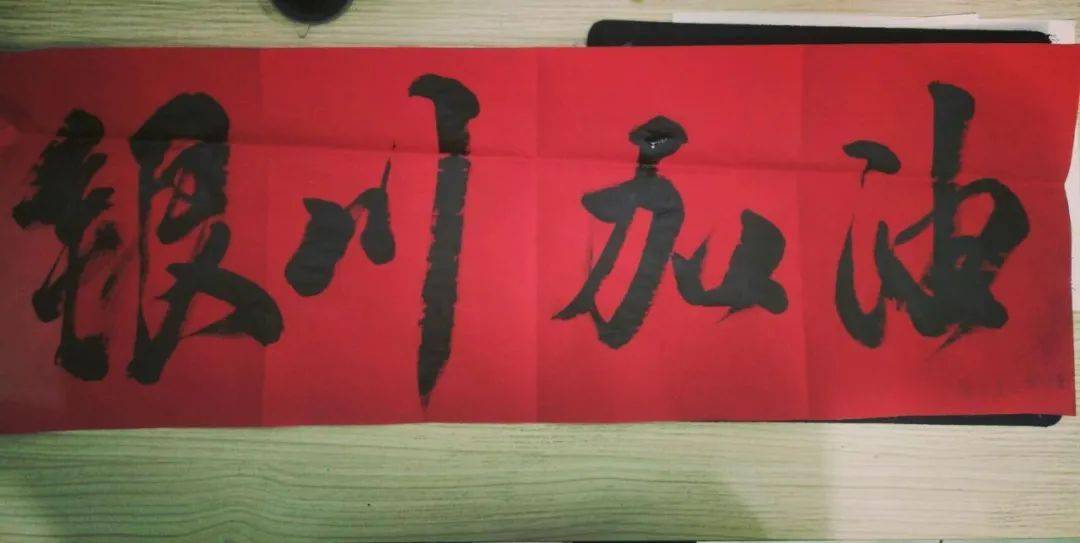 银川加油